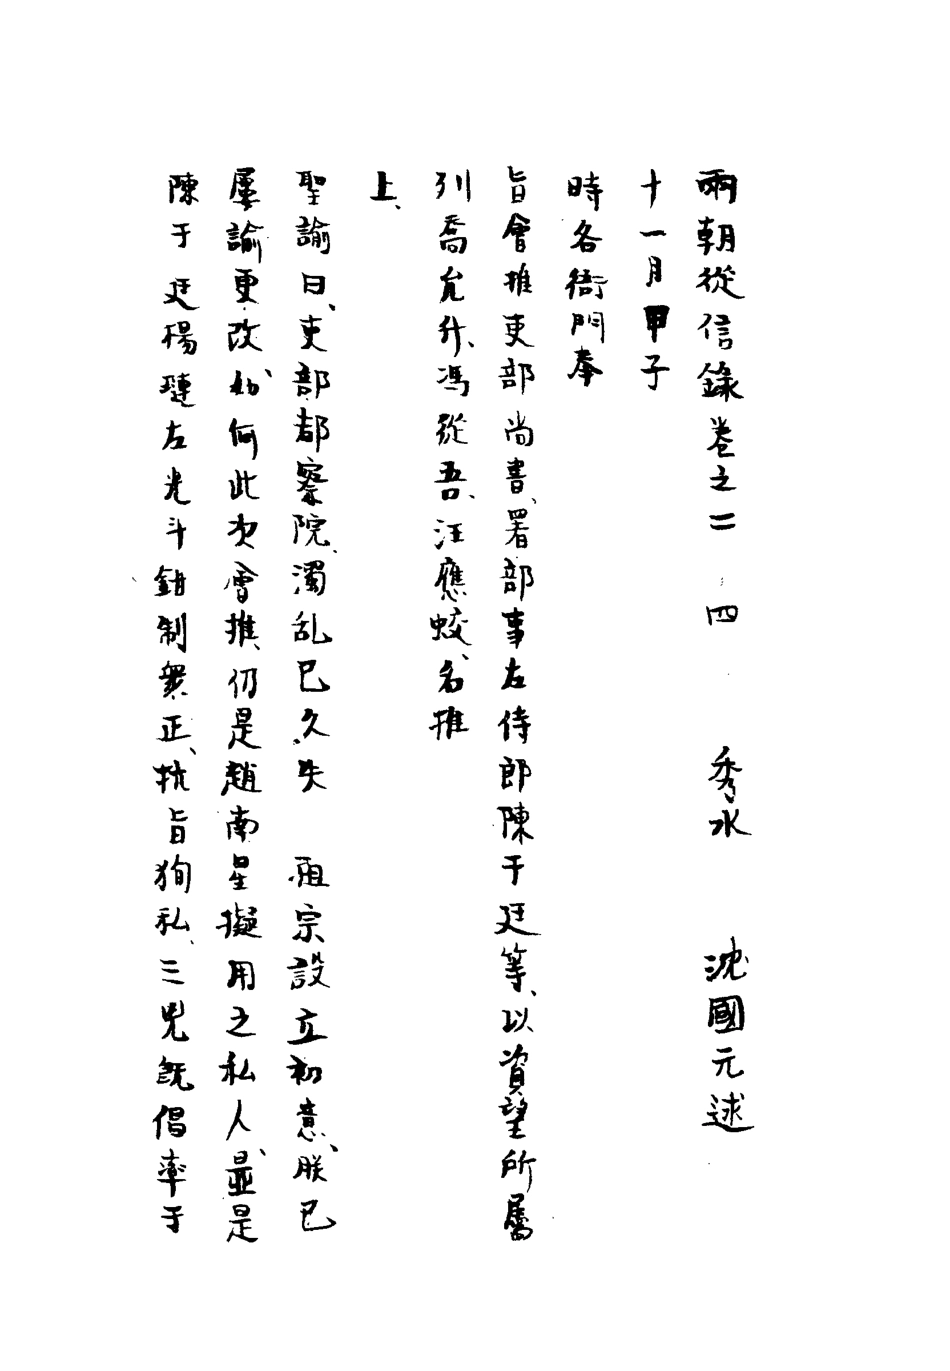 兩朝從信錄卷之二 四 秀水 沈國元述
十一月甲子
時各衙門奉
旨會推吏部尚書、署部事左侍郎陳于廷等、以資望所屬
列喬允升、馮從吾、汪應蛟、名推
上、
聖諭曰、吏部都察院、濁乱已久、失 祖宗設立初意、朕已
屢諭更改、如何此次會推、仍是趙南星擬用之私人、並是
陳于廷楊璉左光斗鉗制衆正、抗旨狥私、三兇既倡率于